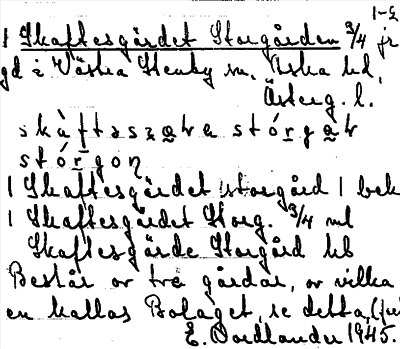 1-2
1 Skaftesgärdet Storgården 3/4 jr
gd i Västra Stenby sn, Aska hd,
Österg. l.
skàftəsẕɑ̱ʈɐ stór̠gɑ̱ʈ
stór̠gon̥
1 Skaftesgärdet storgård 1 bek
1 Skaftesgärdet Storg. 3/4 ml
Skaftesgärde Storgård kb
Består av tre gårdar, av vilka
en kallas Bolaget, se detta,
E. Nordlander 1945.